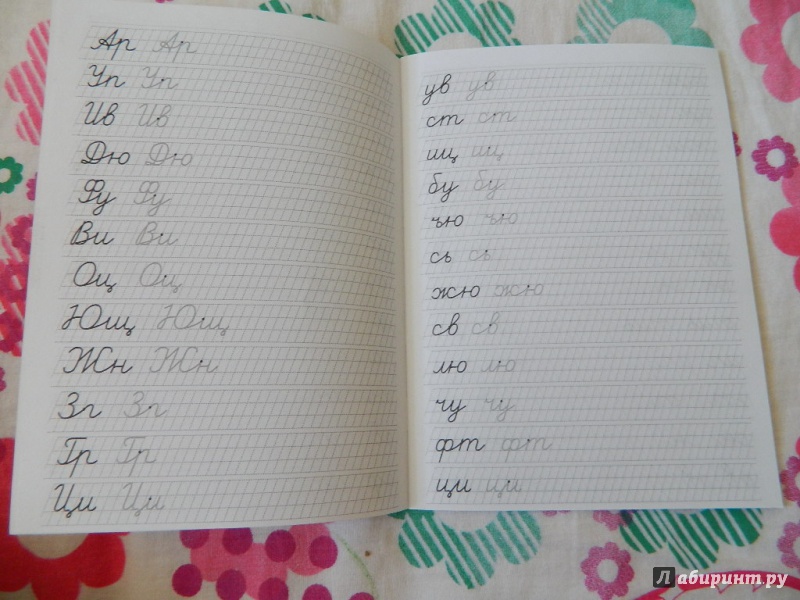 Ар Ар
Уп Уп
Ив Ив
Дю Дю
Фу Фу
Ви Ви
Оц Оц
Ющ Ющ
Жн Жн
Зг Зг
Гр Гр
Ци Ци
ув ув
ст ст
шц шц
бу бу
чю чю
сь сь
жю жю
св св
лю лю
чу чу
фт фт
ци ци
Лабиринт.ру